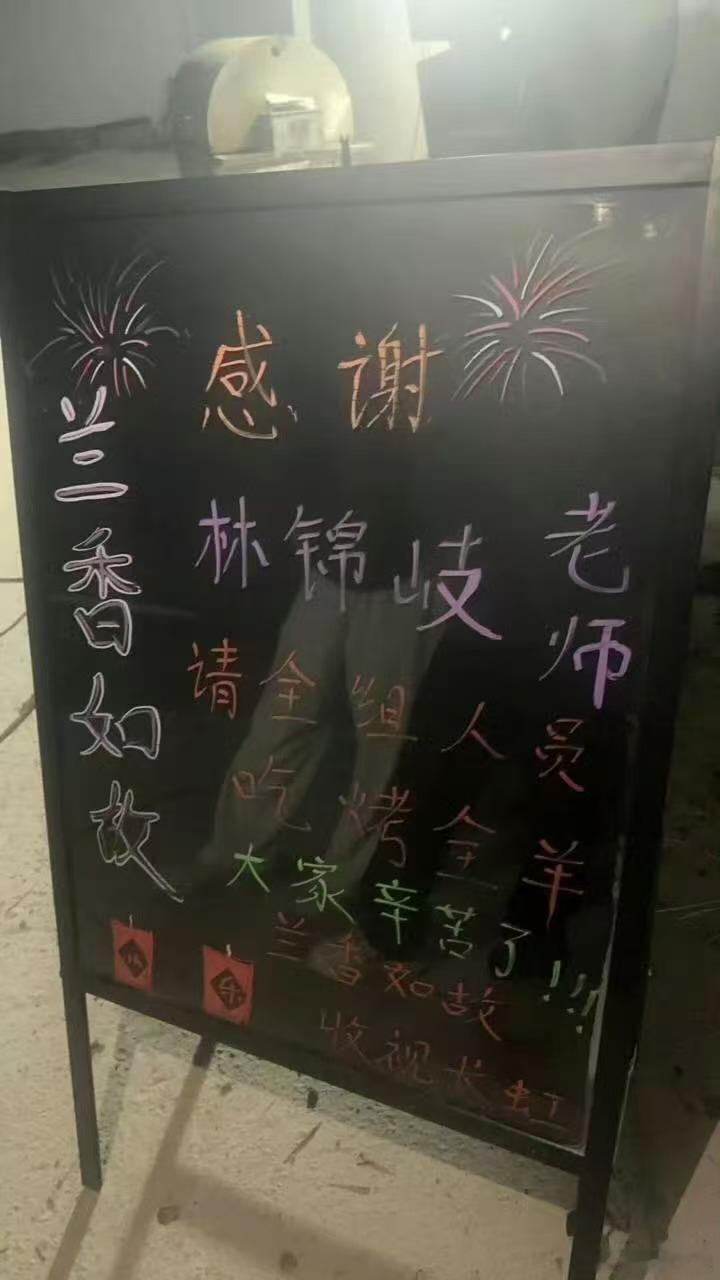 兰香如故
感谢
林锦岐老师
请全组人员
吃烤全羊
大家辛苦了!!!
兰香如故
收视长虹
乐